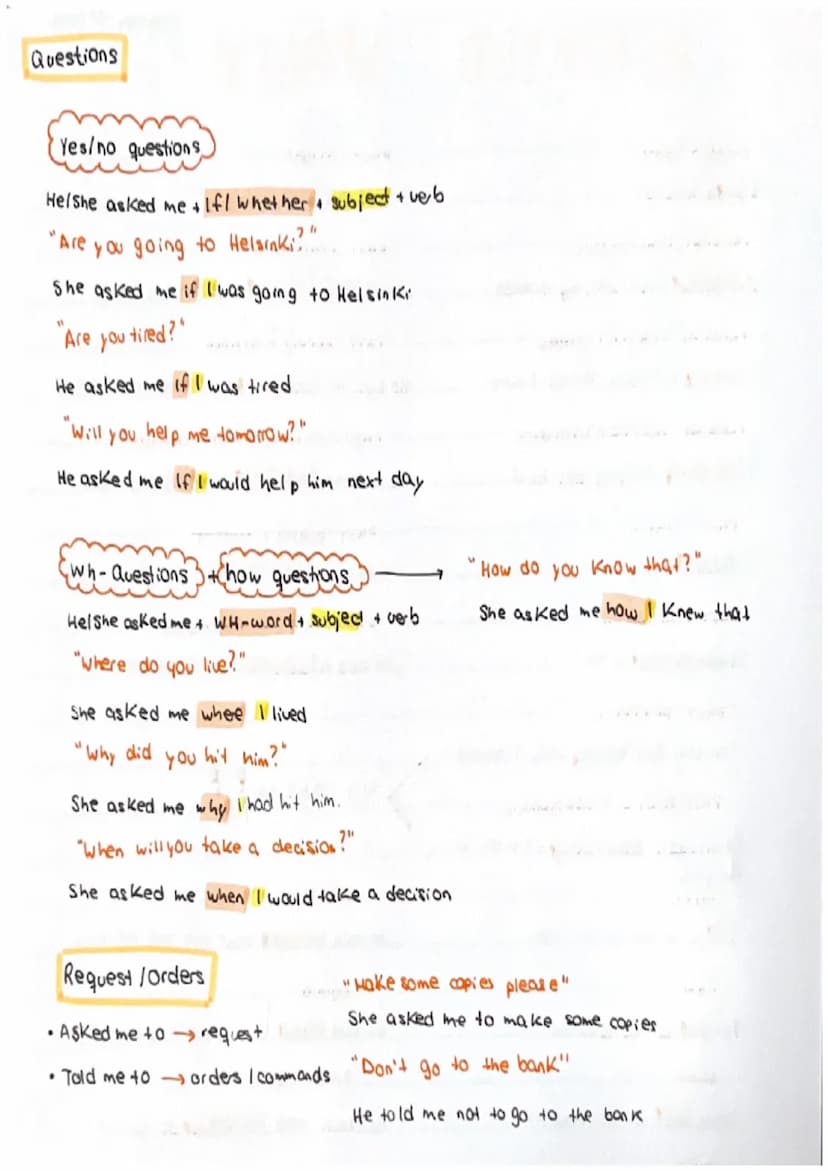 Questions
Yes/no questions
He/she asked me + if/ whether + subject + verb
"Are you going to Helsinki?"
She asked me if I was going to Helsinki
"Are you tired?"
He asked me if I was tired
"Will you help me tomorrow?"
He asked me if I would help him next day
Wh- Questions + how questions → "How do you know that?"
He/she asked me + WH-word + subject + verb
She asked me how I knew that
"where do you live?"
She asked me whee I lived
"Why did you hit him?"
She asked me why I had hit him.
"when will you take a decision?"
She asked me when I would take a decision
Request / orders
• Asked me to → request
• Told me to → orders / commands
"Make some copies please"
She asked me to make some copies
"Don't go to the bank"
He told me not to go to the bank